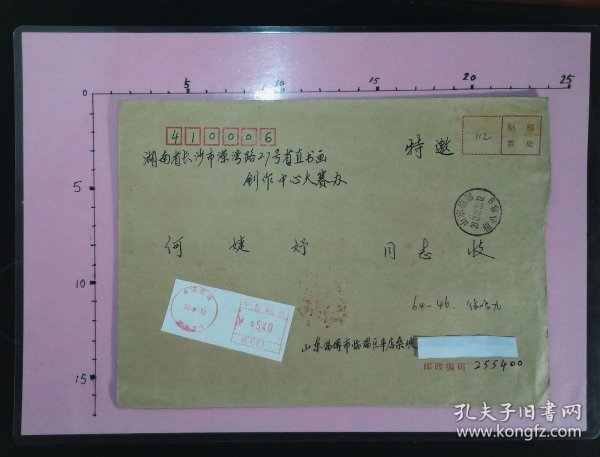 5 10 15 20 25
0
5
10
15
410006
湖南省长沙市溁湾路27号省直书画
创作中心大赛办
特邀
112
贴邮
票处
何婕妤同志收
540
64-46
山东淄博市临淄区辛店
邮政编码 255400
孔夫子旧书网
www.kongfz.com